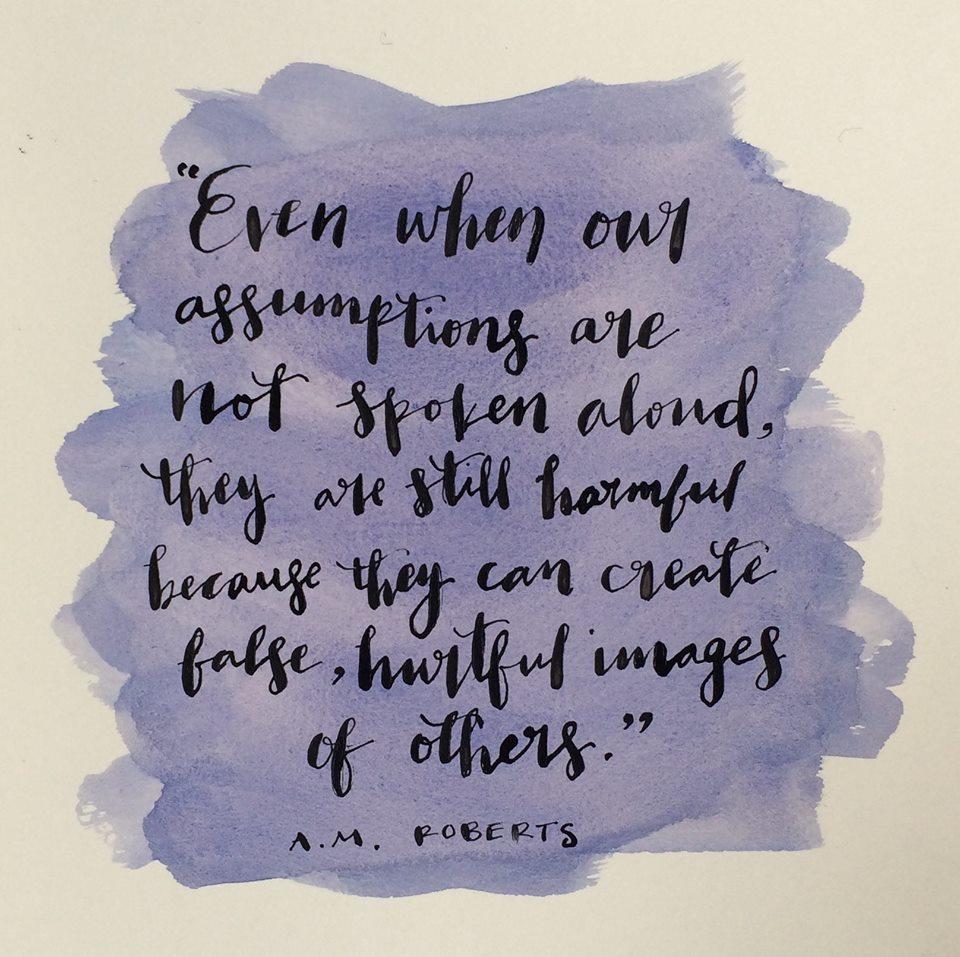 “Even when our
assumptions are
not spoken aloud,
they are still harmful
because they can create
false, hurtful images
of others.”
A.M. ROBERTS